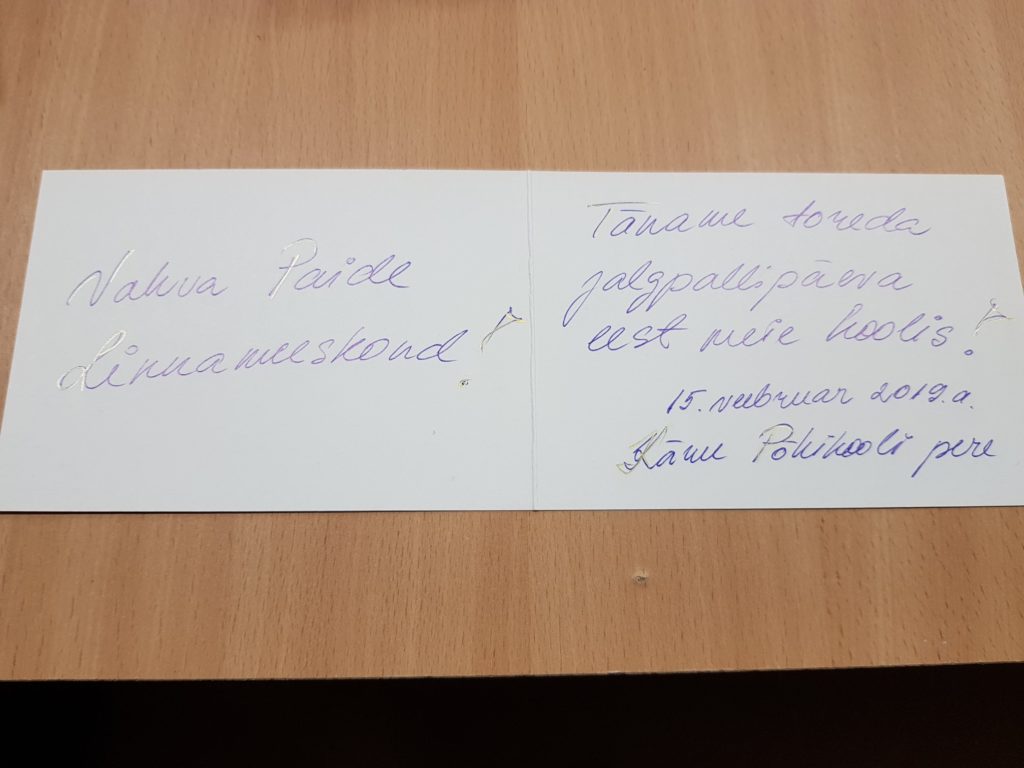 Vahva Paide
Linnameeskond!
Täname toreda
jalgpallipäeva
eest meie koolis!
15. veebruar 2019.a.
Käru Põhikooli pere